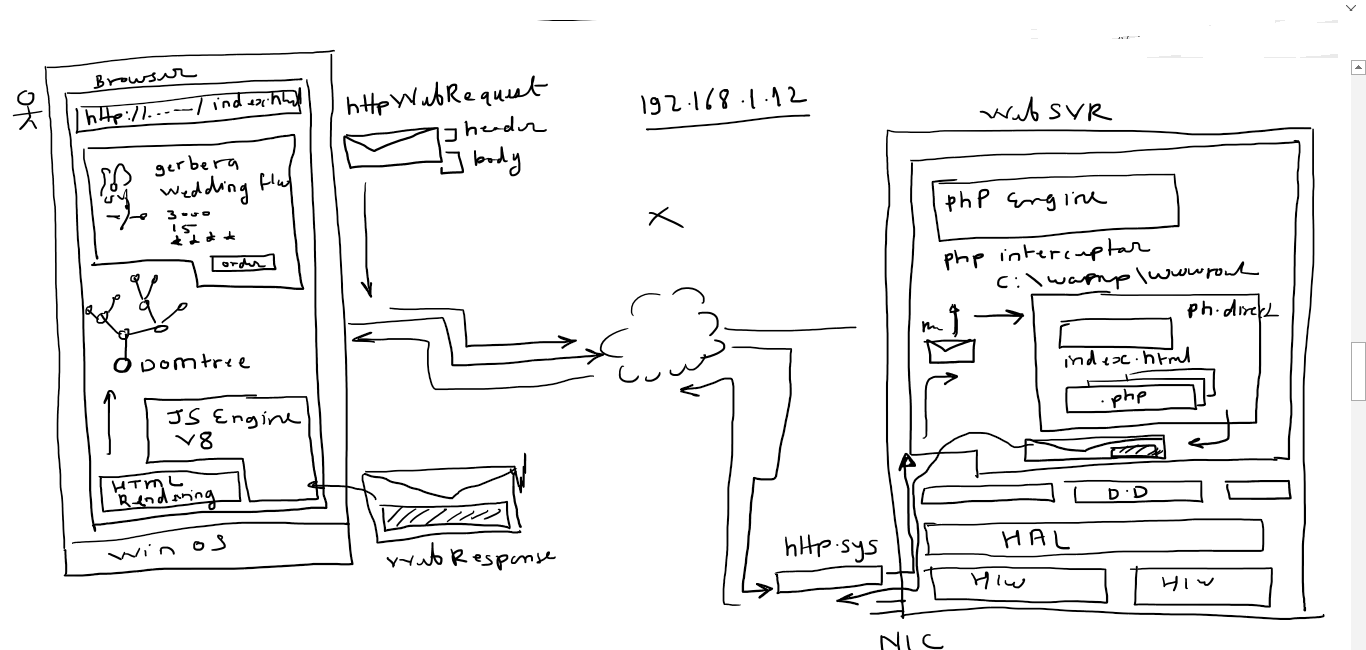 Browser
http://...../index.html
gerbera
wedding flw
3000
15
****
order
Domtree
JS Engine
V8
HTML
Rendering
Win OS
httpWebRequest
header
body
WebResponse
192.168.1.12
http.sys
NIC
WebSVR
php Engine
php interceptar
C:\wapmp\wwwroot
ph.direct
index.html
.php
D.D
HAL
H/W
H/W